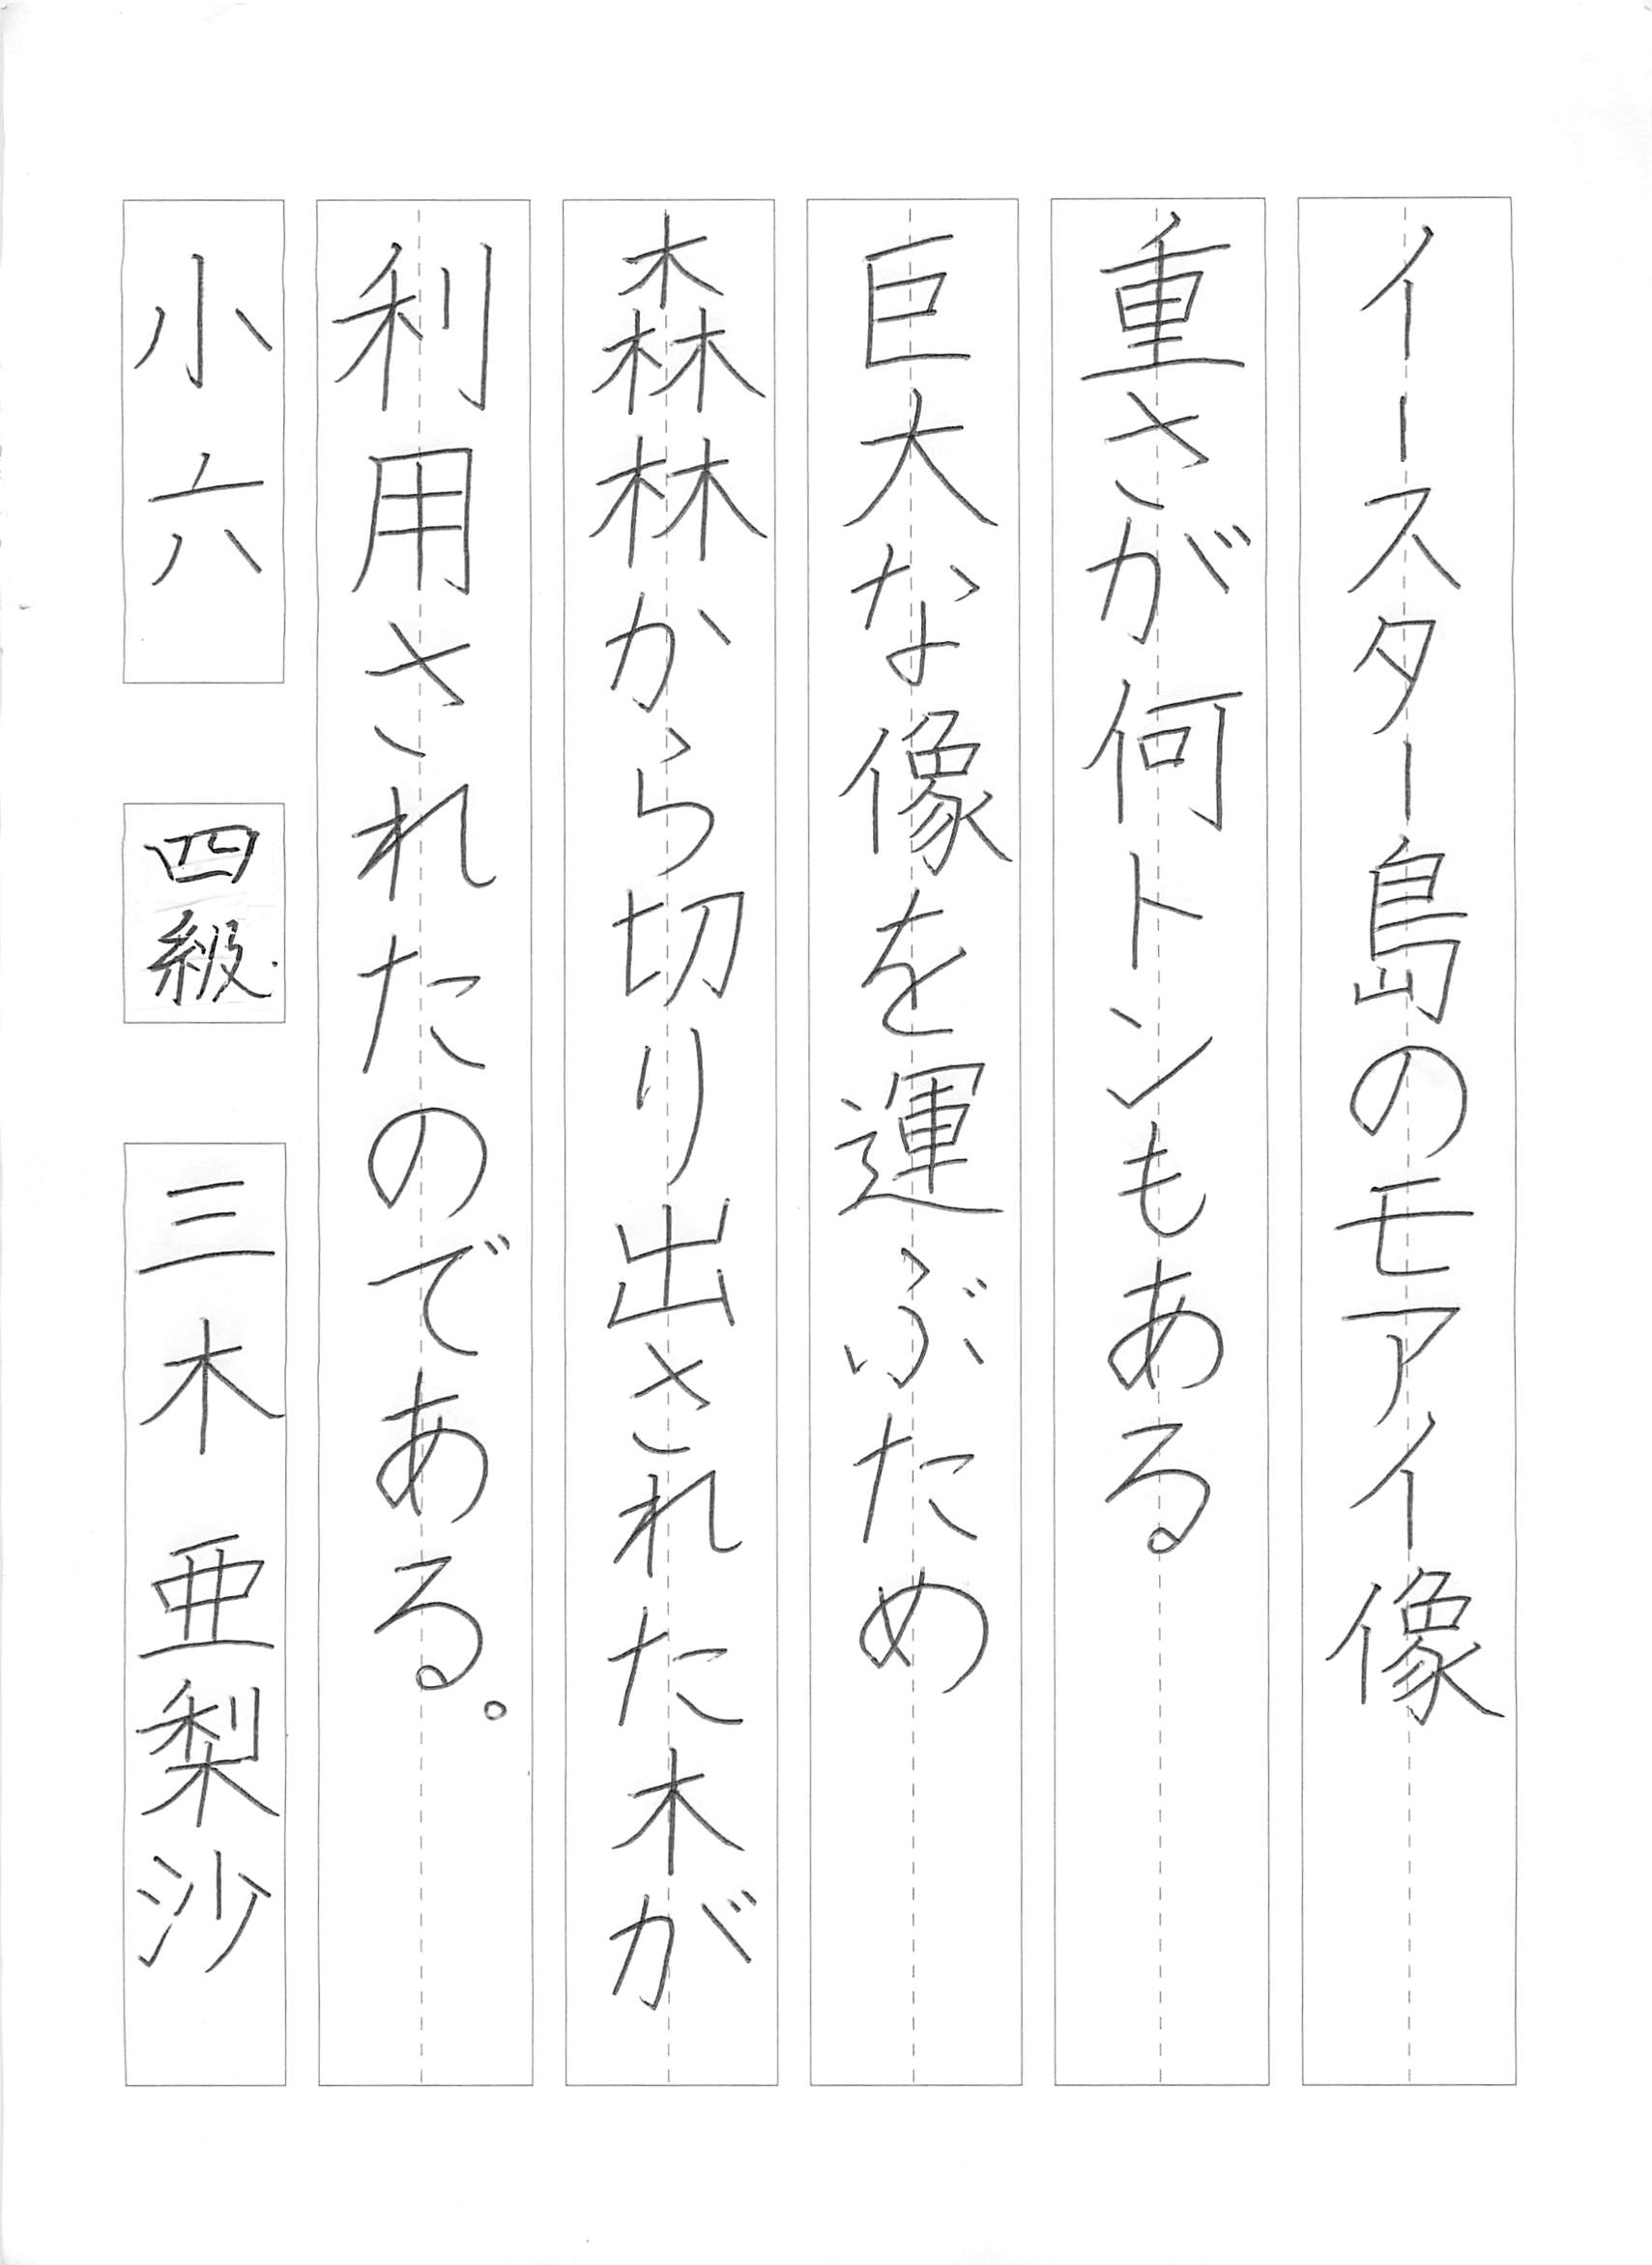 イースター島のモアイ像
重さが何トンもある
巨大な像を運ぶため
森林から切り出された木が
利用されたのである。
小六 四級 三木亜梨沙